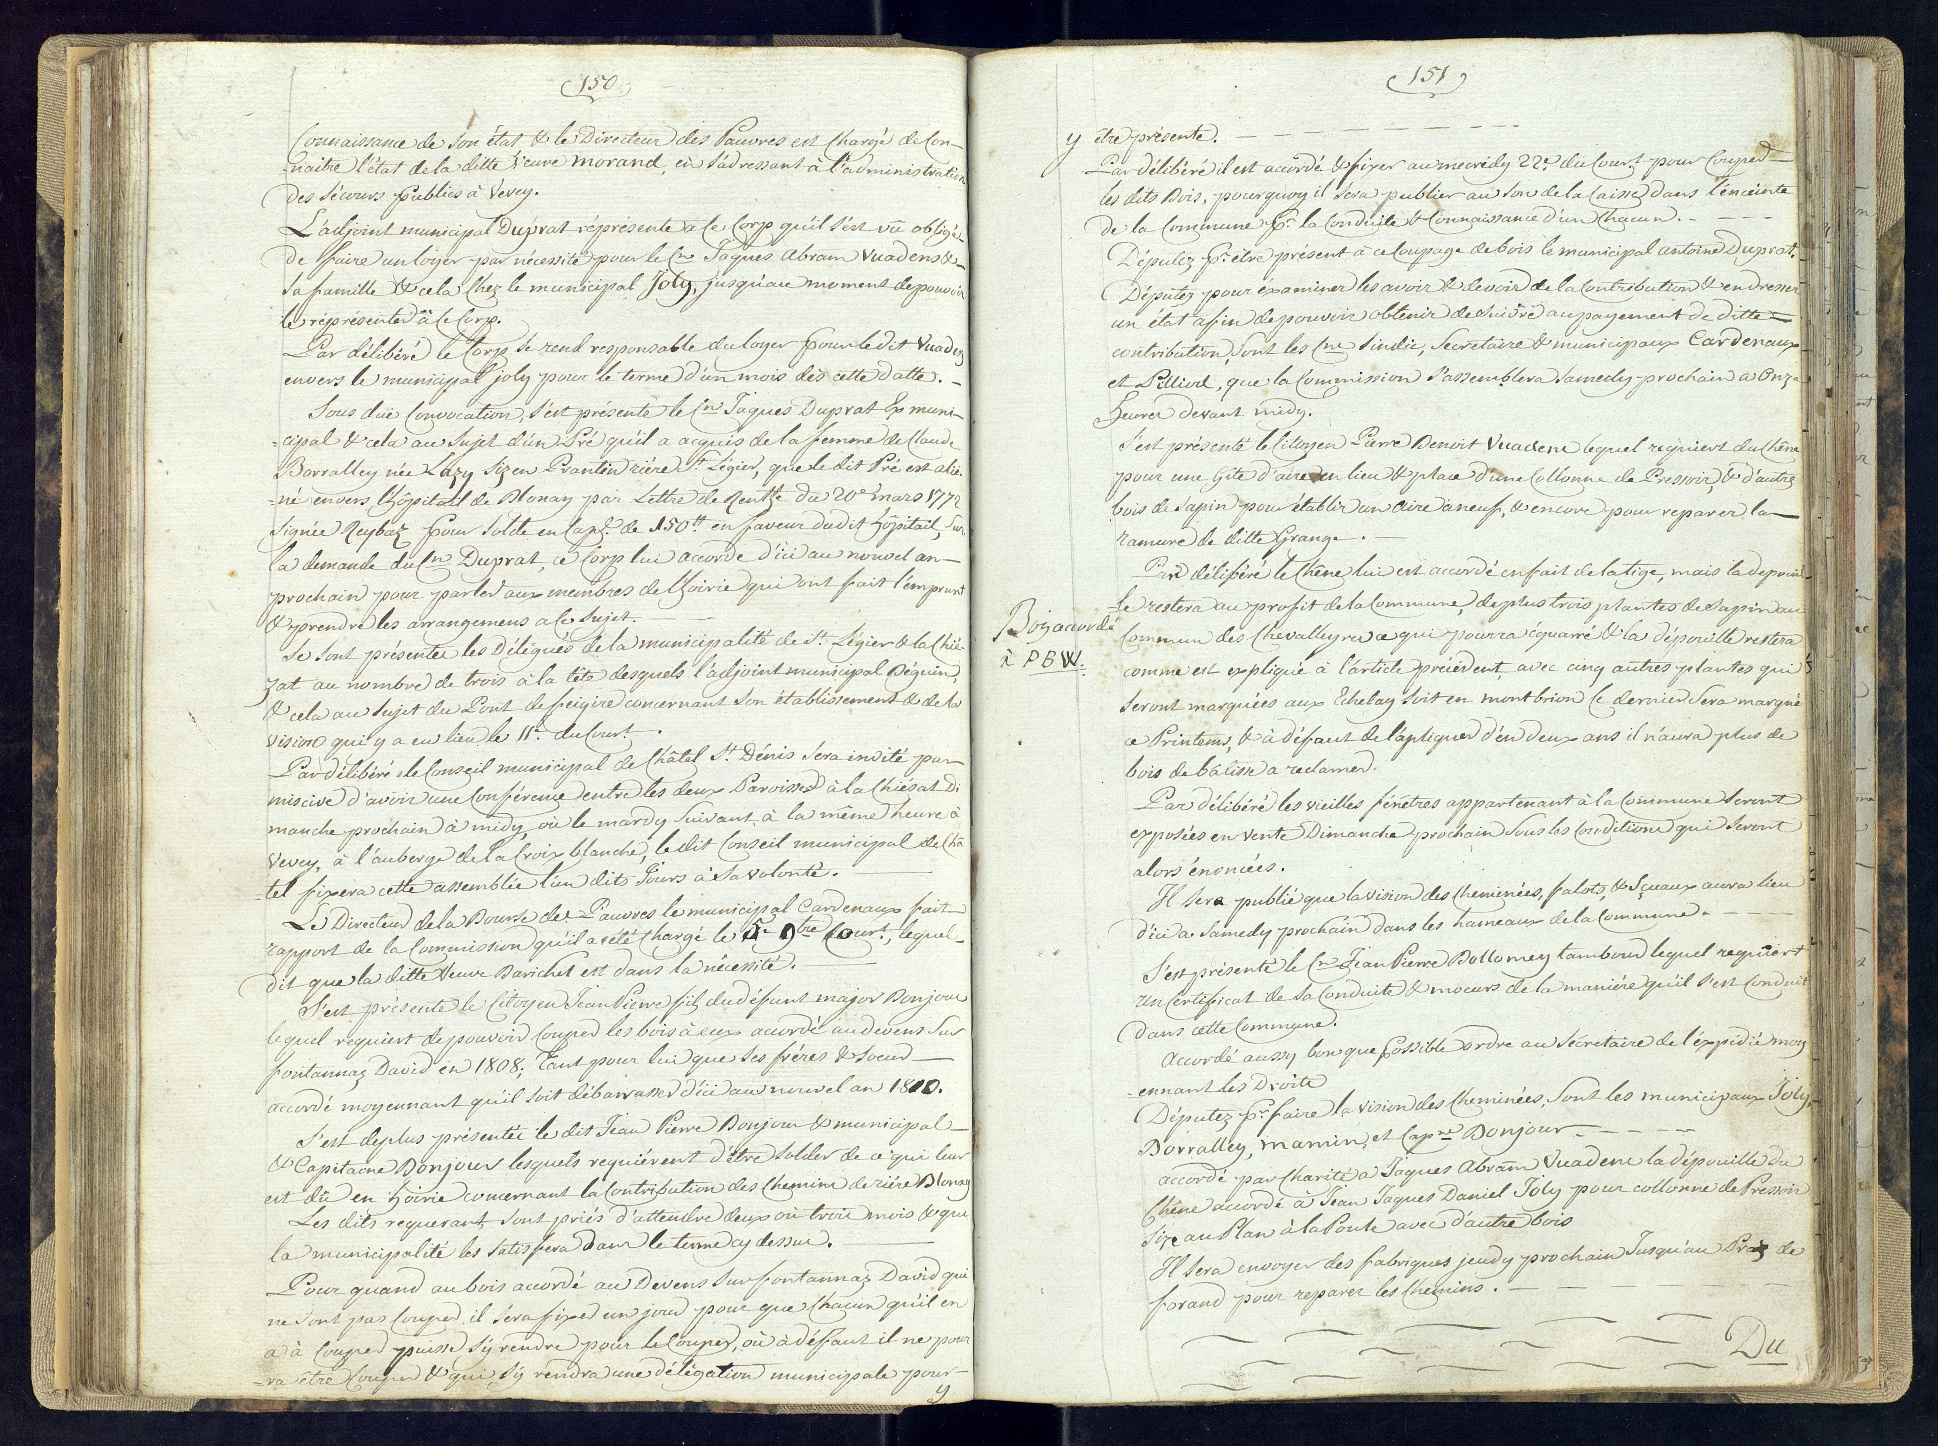 150
Connaissance de son état & le Directeur des Pauvres est Chargé de Con-
-naitre l'état de la ditte Veuve Morand, en s'adressant à l'administration
des Sécours Publics à Vevey.
L'adjoint municipal Duprat réprésente à ce Corp qu'il s'est vû obligé
de faire un loyer par nécessité pour le Cn Jaques Abram Vuadens &
sa famille & cela Chez le municipal Joly, jusqu'au moment de pouvoir
le réprésenter à ce Corp.
Par délibéré le Corp se rend responsable du loyer pour le dit Vuadens
envers le municipal Joly pour le terme d'un mois dès cette datte. -
Sous due Convocation, s'est présenté le Cn Jaques Duprat Ex muni-
-cipal & cela au sujet d'un Pré qu'il a acquis de la femme de Claude
Borralley née Lazy siz en Prantin rière St Légier, que le dit Pré est alié-
-né envers l'hôpitail de Blonay par Lettre de Rentte du 20e mars 1772
signée Reybaz pour solde en Capl de 150 tt en faveur du dit hôpitail, sur
la demande du Cn Duprat, ce Corp lui accorde d'ici au nouvel an
prochain pour parler aux membres de l'hoirie qui ont fait l'emprunt
& prendre les arrangemens a ce sujet. -
Se sont présentés les Délégués de la municipalité de St Légier & la Chié-
zat au nombre de trois à la tête desquels l'adjoint municipal Déguin,
& cela au sujet du Pont de feigire concernant son établissement & de la
vision qui y a eu lieu le 11e du Court.
Par délibéré le Conseil municipal de Châtel St Dénis sera invité par
miscive d'avoir une Conférence entre les deux Paroisses à la Chiésat Di
manche prochain à midy, où le mardy suivant à la même heure à
Vevey, à l'auberge de la Croix blanche, le dit Conseil municipal de Châ
tel fixera cette assemblée l'un dits Jours à sa volonté.
Le Directeur de la Bourse des Pauvres le municipal Cardenaux fait
rapport de la Commission qu'il a été Chargé le 5e 9bre Court, lequel
dit que la ditte Veuve Barichet est dans la nécessité.
S'est présenté le Citoyen Jean Pierre fils du défunt major Bonjour
lequel requiert de pouvoir couper les bois à eux accordé au devens sur
fontannaz David en 1808; Tant pour lui que ses fréres & soeur
accordé moyennant qu'il soit débarrasser d'ici au nouvel an 1810.
S'est de plus présentés le dit Jean Pierre Bonjour & municipal
& Capitaine Bonjour lesquels requiérent d'être solder de ce qui leur
est dû en hoirie concernant la Contribution des Chemins de rière Blonay
Les dits requerant, sont priés d'attendre deux où trois mois & que
la municipalité les satisfera dans le terme cy dessus.
Pour quand au bois accordé au Devens sur fontannaz David qui
ne sont pas Couper, il sera fixer un jour pour que Chacun qu'il en
a à Couper puisse s'y rendre pour le Couper, où à défaut il ne pour
-ra être Couper & qui s'y rendra une délégation municipale pour
y
151
y être présente.
Par délibéré il est accordé & fixer au mecredy 22e du Court pour Couper
les dits Bois, pourquoy il sera publier au son de la Caisse dans l'enceinte
de la Commune Pr la Conduite & Connaissance d'un Chacun. -
Députez Pr être présent à ce Coupage de bois le municipal antoine Duprat.
Députez pour examiner les avoir & devoir de la Contribution & en dresser
un état afin de pouvoir obtenir de suivre au payement de ditte
contribution, sont les Cns Sindic, Secretaire & municipaux Cardenaux
et Pilliod, que la Commission s'assemblera samedy prochain a Onze
heures devant midy.
S'est présenté le Citoyen Pierre Benoit Vuadens lequel requiert du Chêne
pour une Gite d'aire en lieu & place d'une Collonne de Pressoir, & d'autres
bois de sapin pour établir un aire à neuf, & encore pour reparer la
ramure de ditte Grange. -
Par délibéré le Chêne lui est accordé en fait de la tige, mais la depouil-
-le restera au profit de la Commune, de plus trois plantes de sapin au
Commun des Chevalleyres ce qui pourra équarré & la dépouille restera
comme est expliqué à l'article précédent, avec cinq autres plantes qui
seront marquées aux Echelay soit en montbrion Ce dernier sera marqué
ce Printems, & à défaut de l'apliquer d'en deux ans il n'aura plus de
bois de bâtisse a reclamer.
Bois accordé
à P B W.
Par délibéré les vieilles fénêtres appartenant à la Commune seront
exposées en vente Dimanche prochain sous les Conditions qui seront
alors énoncées.
Il sera publié que la vision des Cheminées, falots, & Sçeaux aura lieu
d'ici a Samedy prochain dans les hameaux de la Commune. -
S'est présenté le Cn Jean Pierre Bollomey tambour lequel requiert
un Certificat de sa Conduite & moeurs de la maniére qu'il s'est Conduit
dans cette Commune.
Accordé aussy bon que possible ordre au Sécretaire de l'éxpédié moy
-ennant les Droits
Députez Pr faire la vision des Cheminées, sont les municipaux Joly,
Borralley, Mamin, et Capne Bonjour -
accordé par Charité a Jaques Abram Vuadens la dépouille du
Chêne accordé à Jean Jaques Daniel Joly pour collonne de Pressoir
size au Plan à la Ponte avec d'autre bois
Il sera envoyer des fabriques jeudy prochain Jusqu'au Praz de
forand pour reparer les Chemins. -
Du